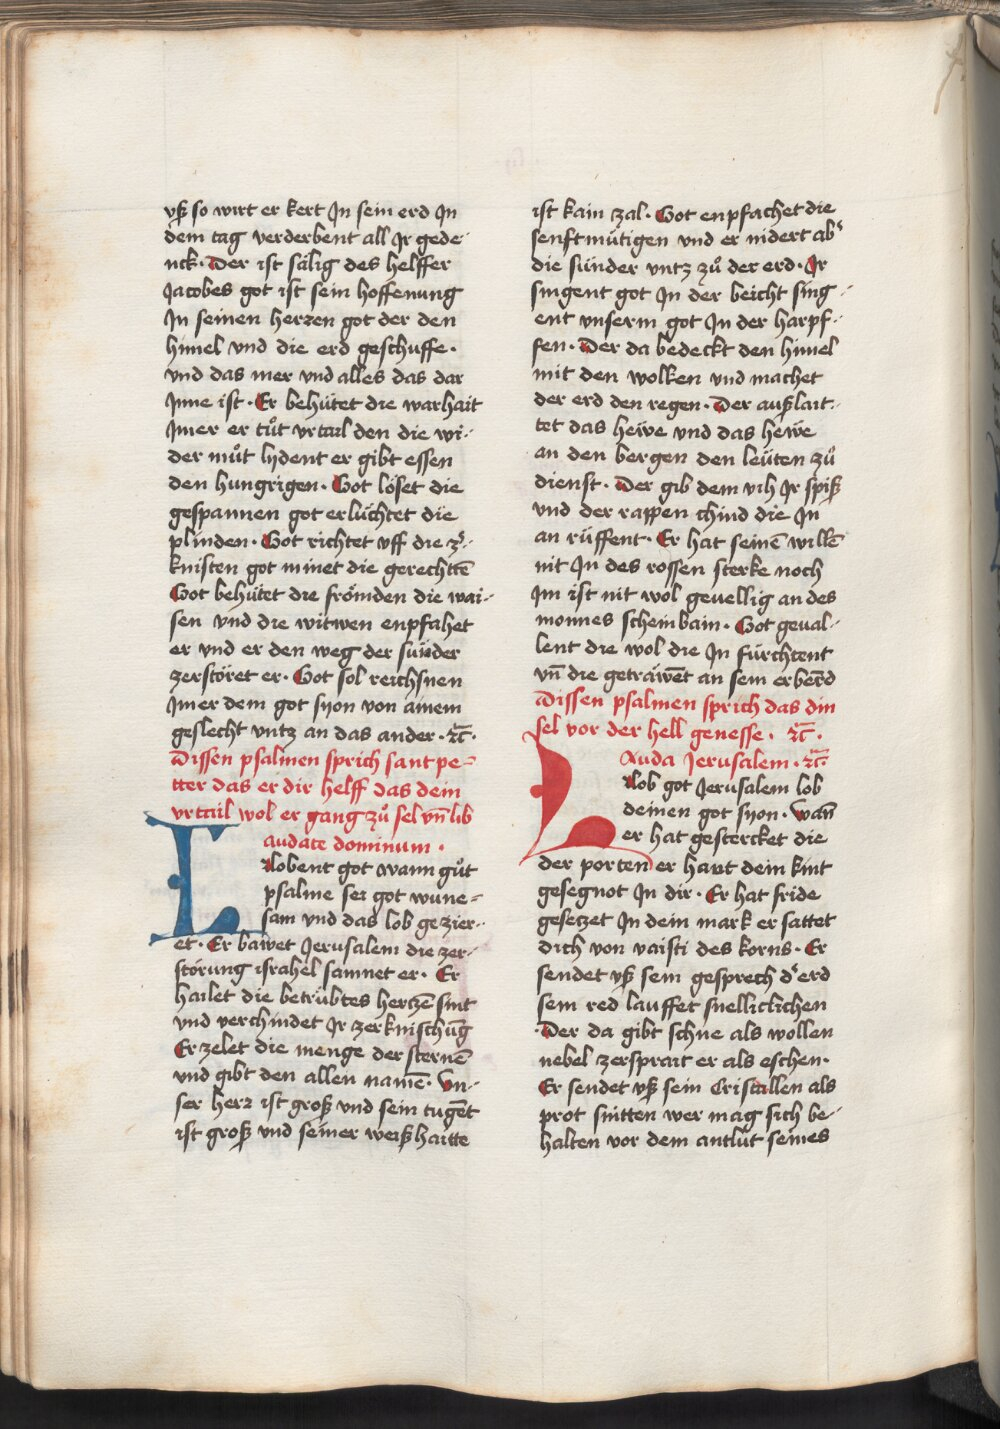 vß so wirt er kert Jn sein erd Jn
dem tag verderbent all Jr gede-
nck· Der ist sälig des helffer
Jacobes got ist sein hoffenung
Jn seinen herzen got der den
himel vnd die erd geschuffe·
vnd das mer vnd alles das dar
Jnne ist· Er behütet die warhait
Jmer er tůt vrtail den die wi-
der můt lydent er gibt essen
den hungrigen· Got löset die
gespannen got erlüchtet die
plinden· Got richtet vff die zer-
knisten got minet die gerechtē
Got behütet die frömden die wai-
sen vnd die witwen enpfahet
er vnd er den weg der sünder
zerstöret er· Got sol reichsnen
Jmer dem got syon von ainem
geslecht vntz an das ander· ꝛc̄·
Dissen psalmen sprich sant pe-
tter das er dir helff das dein
vrtail wol er gang zů sel vn̄ lib
Laudate dominum·
lobent got wann gůt
psalme sei got wune-
sam vnd das lob gezier-
et· Er bawet Jerusalem die zer-
störung israhel samnet er· Er
hailet die betrübtes hertzē sint
vnd verchindet Jr zerknischūg
Er zelet die menge der sternē
vnd gibt den allen namē· Vn-
ser herz ist groß vnd sein tugēt
ist groß vnd seiner weißhaitte
ist kain zal· Got enpfachet die
senftmütigen vnd er nidert abʼ
die sünder vntz zů der erd· Jr
singent got Jn der beicht sing-
ent vnserm got Jn der harpf-
fen· Der da bedeckt den himel
mit den wolken vnd machet
der erd den regen· Der außlait-
tet das hewe vnd das hewe
an den bergen den leüten zů
dienst· Der gib dem vih Jr spiß
vnd der rappen chind die Jn
an rüffent· Er hat seinē willē
nit Jn des rossen sterke noch
Jm ist nit wol geuellig an des
monnes schein bain· Got geual-
lent die wol die Jn fürchtent
vn̄ die geträwēt an sein erbērd
Dissen psalmen sprich das din
sel vor der hell genesse· ꝛc̄·
Lauda Jerusalem· ꝛc̄·
lob got Jerusalem lob
deinen got syon· wan̄
er hat gestercket die
der porten er haut dein kint
gesegnot Jn dir· Er hat fride
gesetzet Jn dein mark er sattet
dich von vaisti des korns· Er
sendet vß sein gesprech dʼ erd
sein red lauffet snellicklichen
Der da gibt schne als wollen
nebel zersprait er als eschen·
Er sendet vß sein Cristallen als
prot snitten wer mag sich be-
halten vor dem antlüt seines